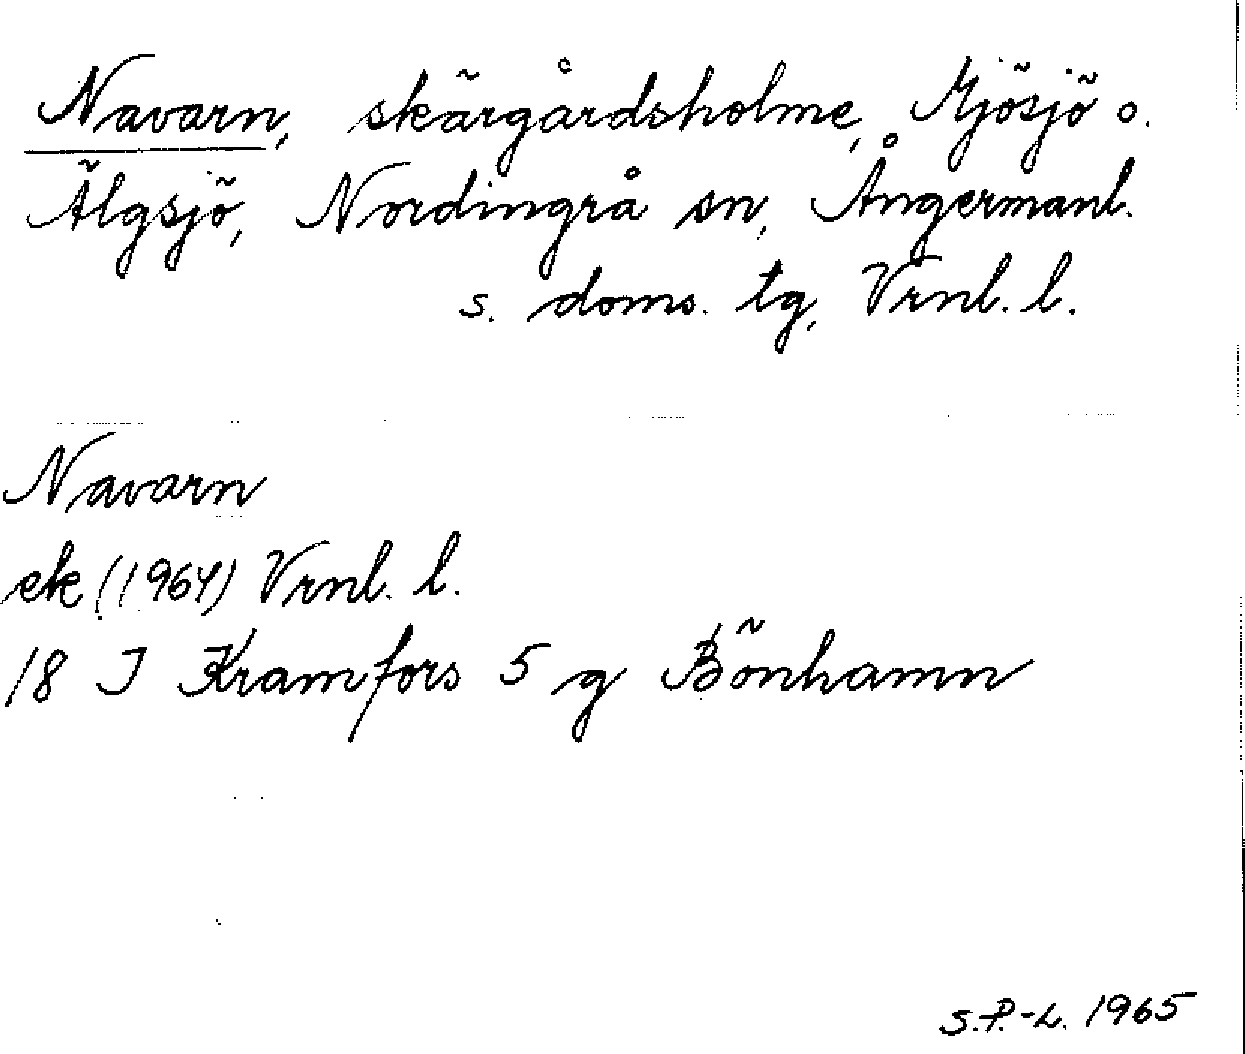 Navarn, skärgårdsholme, Mjösjö o.
Älgsjö, Nordingrå sn, Ångermanl.
s. doms. tg, Vrnl. l.
Navarn
ek (1964) Vrnl. l.
18 J Kramfors 5 g Bönhamn
S.P.-L. 1965